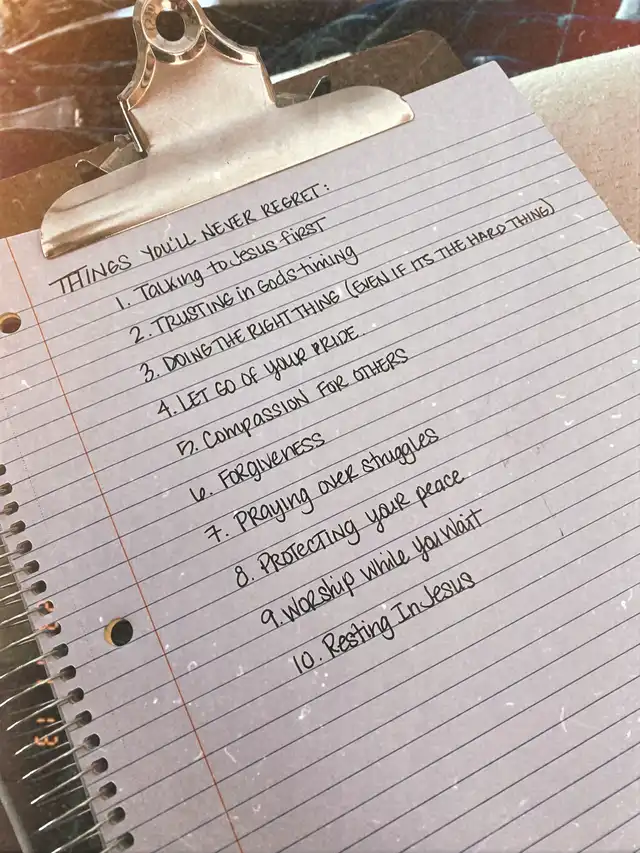 THINGS YOU'LL NEVER REGRET:
1. Talking to Jesus first
2. TRUSTING in Gods timing
3. DOING THE RIGHT THING (EVEN IF ITS THE HARD THING)
4. LET GO OF YOUR PRIDE.
5. COMPASSION FOR OTHERS
6. FORGIVENESS
7. PRAYING over struggles
8. PROTECTING your peace
9. WORSHIP while you Wait
10. Resting In Jesus